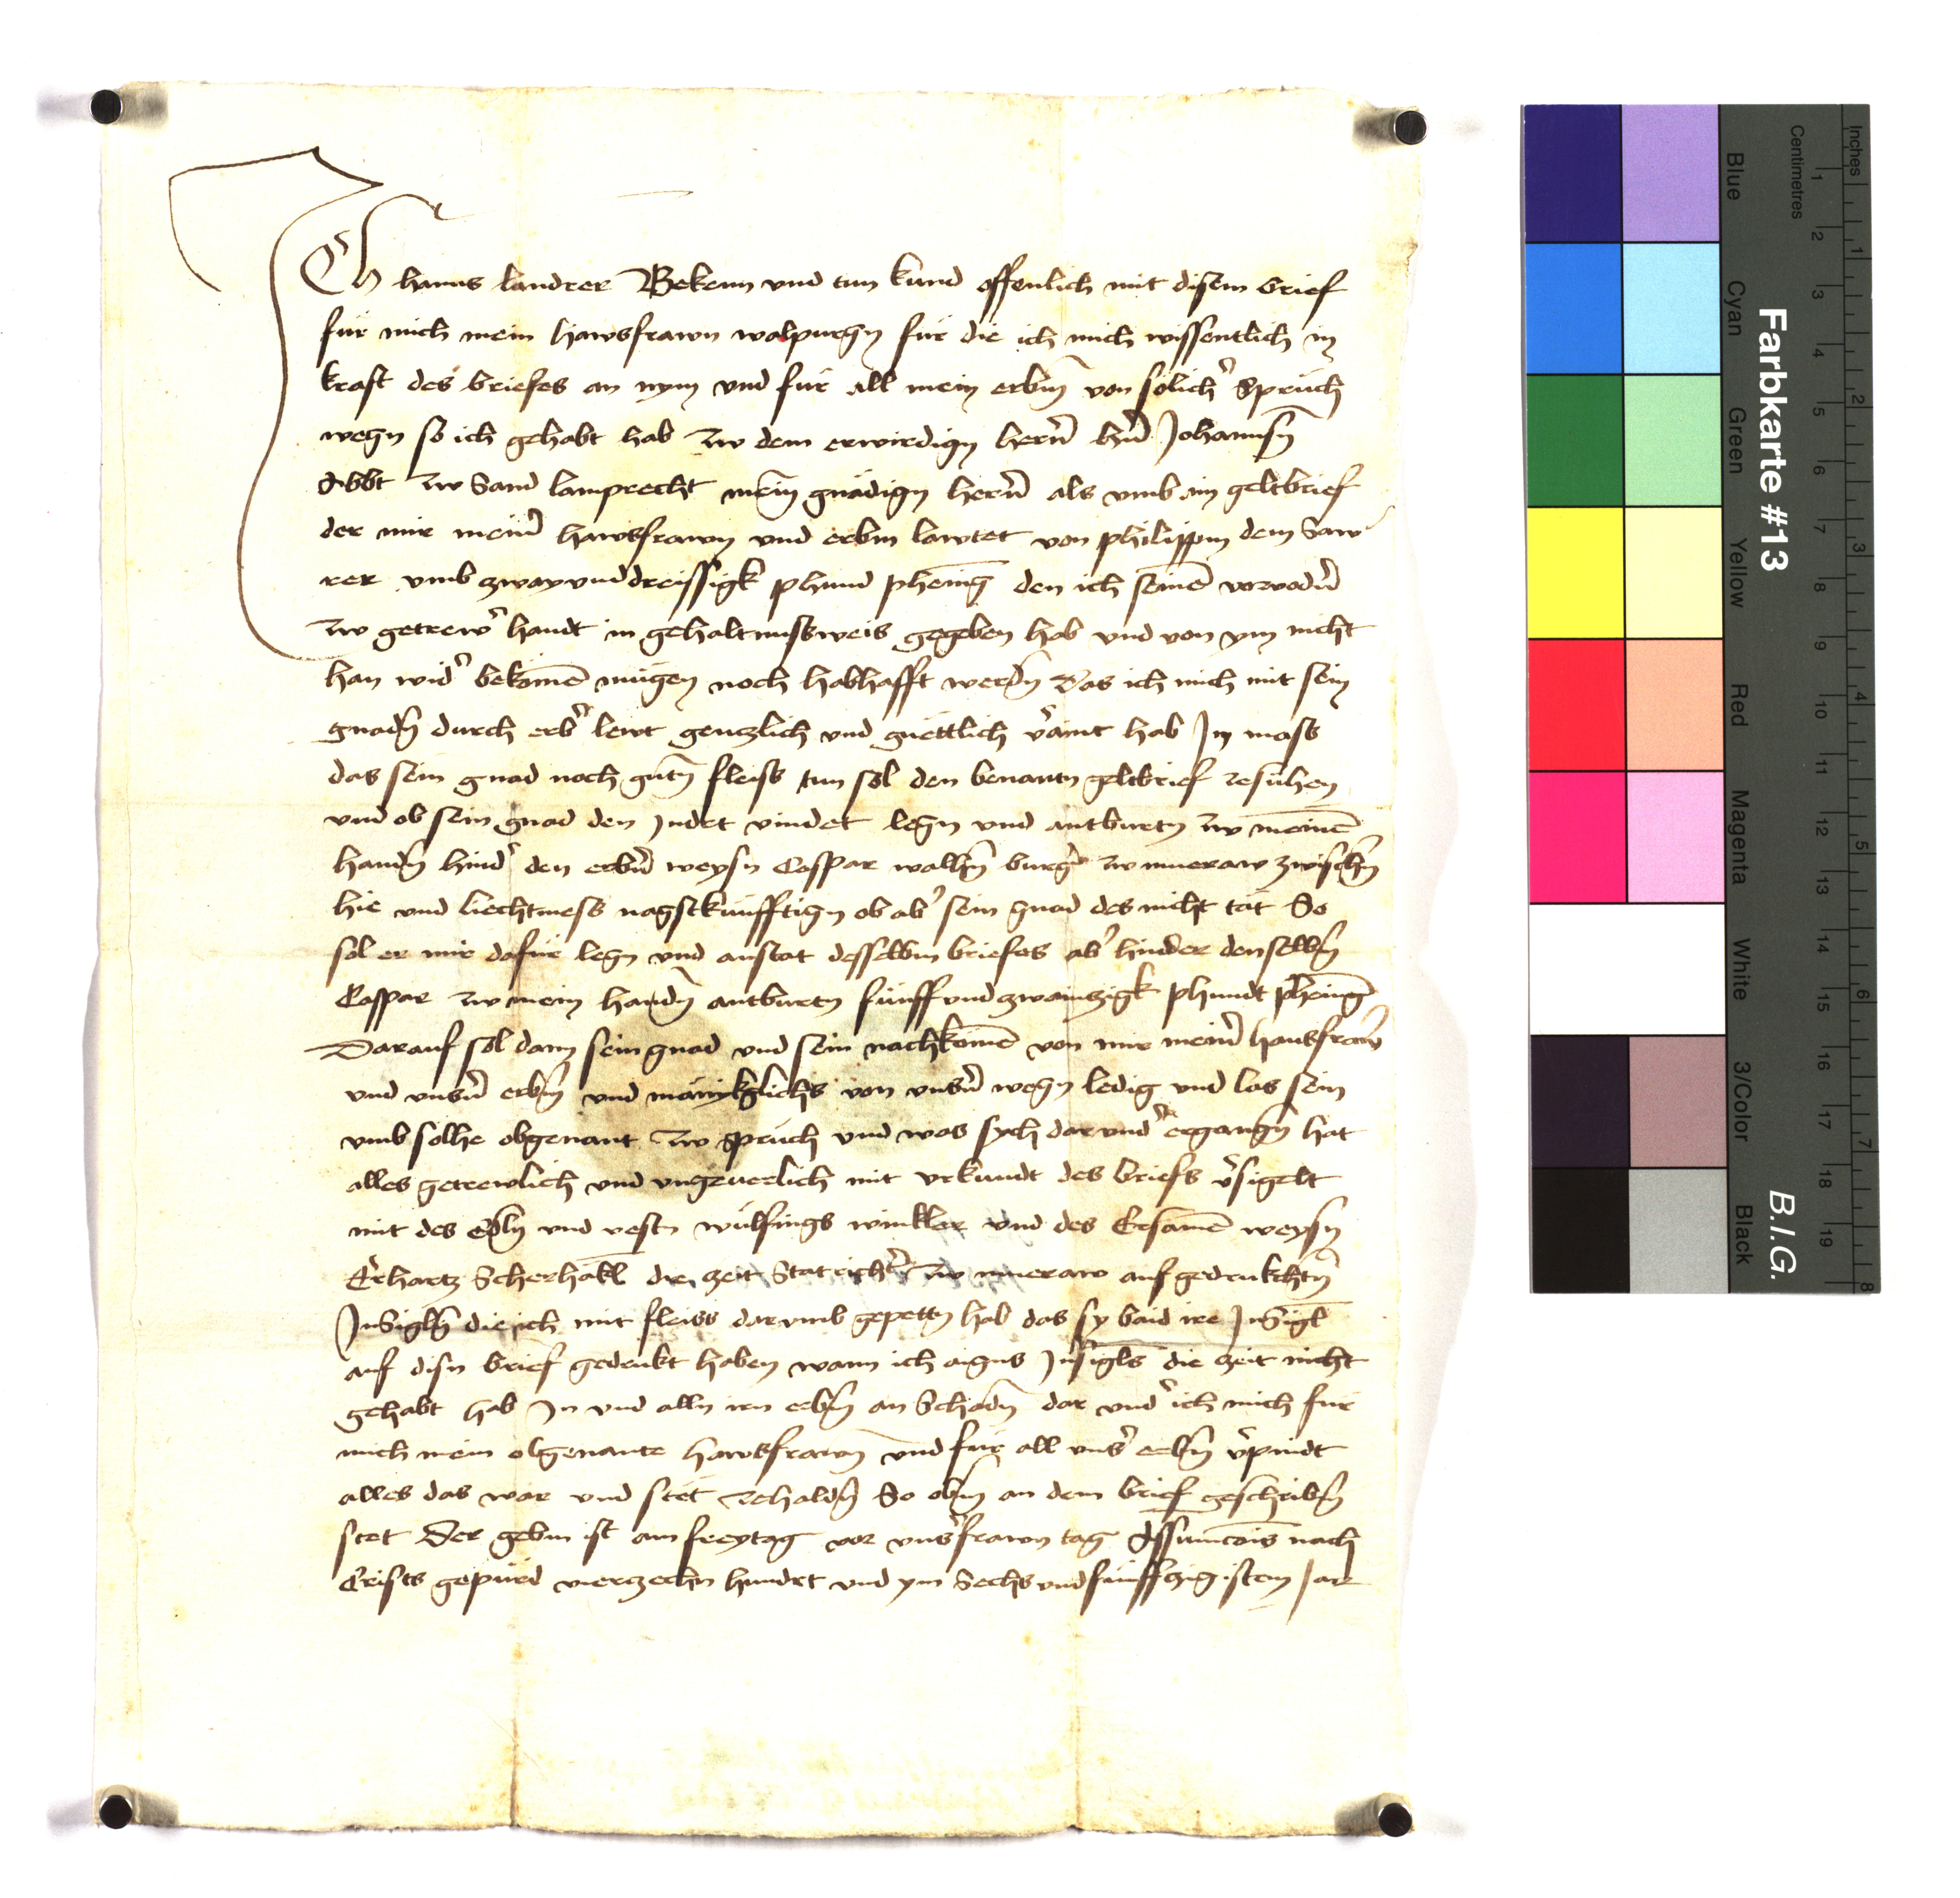 Ich hanns landrer Bekenn vnd tun kund offenlich mit disem brief
für mich mein hawsfrawn walpurgn für die ich mich wissentlich in
kraft des briefes an nym vnd für all mein erbm̄ von sölich' Sprüch
wegn so ich gehabt hab zw dem erwirdign herrn̄ hn̄ Johannsn̄
Abbt zw Sand lamprecht mein̄ gnädign herrn̄ als vmb ain geltbrief
der mir mein' hawsfrawn vnd erbm lawtet von philippm dem Saw
rer vmb zway vnd dreissigk phund phening den ich seinē voruodn̄
zw getrew' handt in gehaltnusweis gegeben hab vnd von ym nicht
han wid' bekomē mügen noch habhafft werdn̄ Das ich mich mit sein
gnadn̄ durch erb' lewt genczlich vnd güettlich v'aint hab In mass
das sein gnad noch gutn̄ fleiss tun sol den benantn geltbrief zesuhen
vnd ob sein gnad den Jndrt vindet legn vnd antburtn zw meinē
handn̄ hind' den erbn̄ weysn Caspar wallhn̄ burg' zw mueraw zwischn̄
hie vnd liechtmess nagstkünfftign ob ab' sein gnad des nicht tät So
sol er mir dafür legn vnd anstat desselbm briefes ab' hinder denselbm̄
Caspar zw mein handn̄ antburtn fünff vnd zwainzigk phundt phening
Darauf sol dann sein gnad vnd sein nachkomē von mir mein' hausfrawn̄
vnd vnsn̄ erbm̄ vnd mänikglichs von vnsn̄ wegn ledig vnd los sein
vmb solhe obgenant zw spruch vnd was sych darvnd' ergangn̄ hat
alles getrewlich vnd vngeuerlich mit vrkundt des briefs v'sigelt
mit des edln̄ vnd vestn wulfings winkler vnd des Ersamē weysn
Erhartz Scherhakl die zeit Statricht' zw mueraw aufgedrukchtn̄
Jnsigln̄ die ich mit fleiss darvmb gepettn hab das sy baid ire Jnsigl
auf disn brief gedrukt haben wann ich aigns Jnsigls die zeit nicht
gehabt hab Jn vnd alln irn erbm̄ an Schadn̄ dar vnd' ich mich für
mich mein obgenante hawsfrawn̄ vnd für all vns' erbm̄ v'pindt
alles das war vnd stet zehaldn̄ So obm̄ an dem brief geschribm̄
stet Der gebm ist am freytag vor vns' frawn tag Assumcois nach
Crists gepürd vierzechn hundrt vnd ym Sechs vnd fünffzigistem Jar
Farbkarte #13
B.I.G.
Inches
Centimetres
1 2 3 4 5 6 7 8 9 10 11 12 13 14 15 16 17 18 19
1 2 3 4 5 6 7 8
Blue
Cyan
Green
Yellow
Red
Magenta
White
3/Color
Black